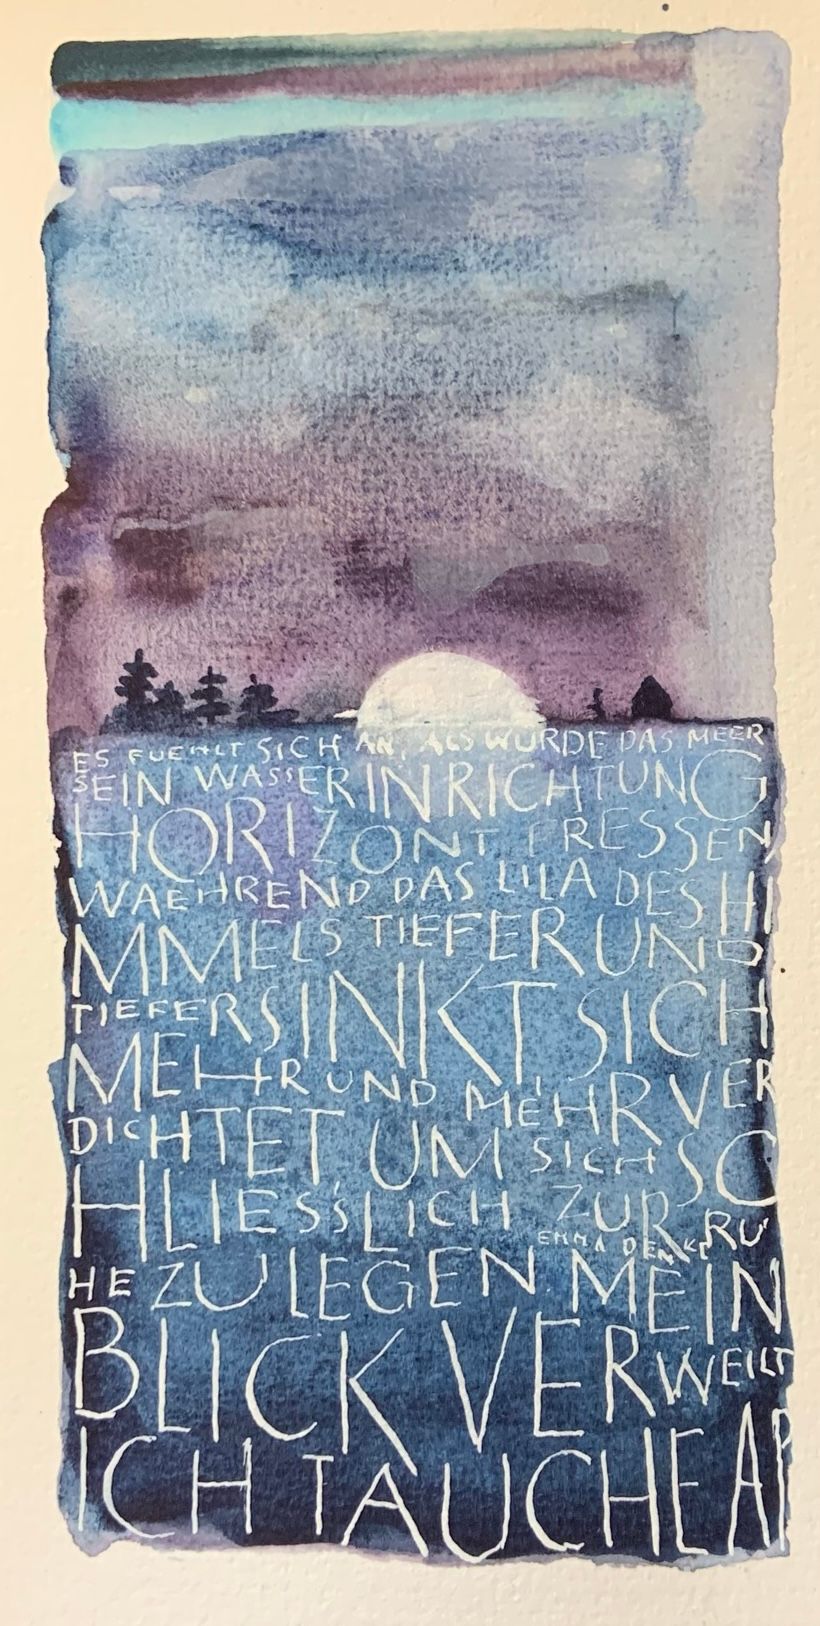 ES FUEHLT SICH AN, ALS WÜRDE DAS MEER
SEIN WASSER IN RICHTUNG
HORIZONT PRESSEN,
WAEHREND DAS LILA DES HI
MMELS TIEFER UND
TIEFER SINKT SICH
MEHR UND MEHR VER
DICHTET UM SICH SC
HLIESSLICH ZUR RU
EMMA DEMKE
HE ZU LEGEN. MEIN
BLICK VERWEILT
ICH TAUCHE AB